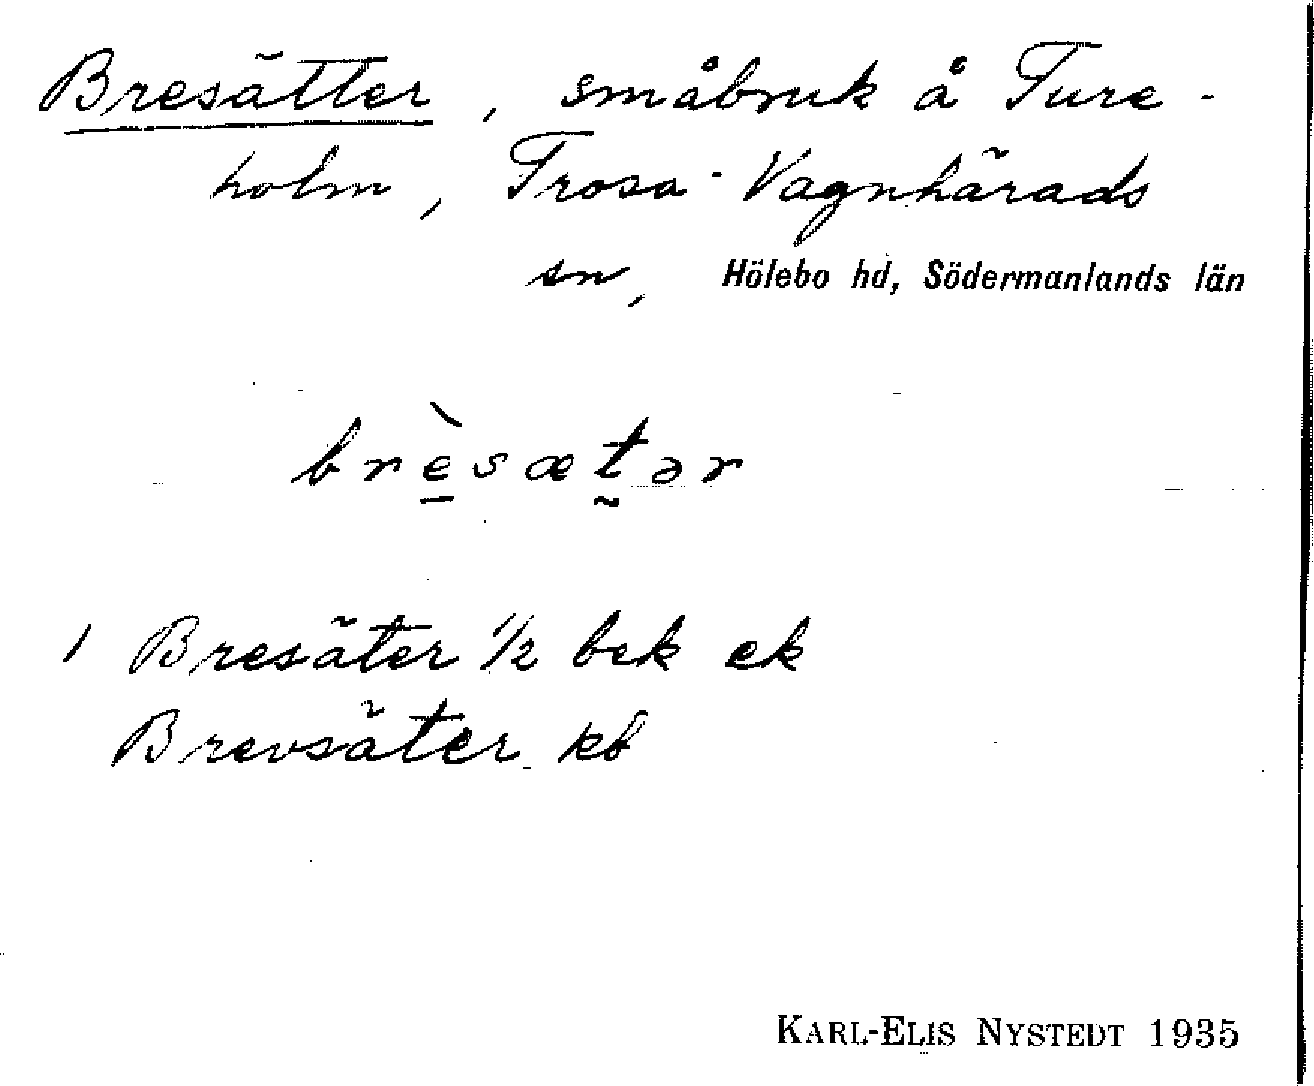 Bresätter, småbruk å Ture-
holm, Trosa-Vagnhärads
sn, Hölebo hd, Södermanlands län
brè̠sæt̰ər
/ Bresäter 1/2 bek ek
Brevsäter kb
KARL-ELIS NYSTEDT 1935